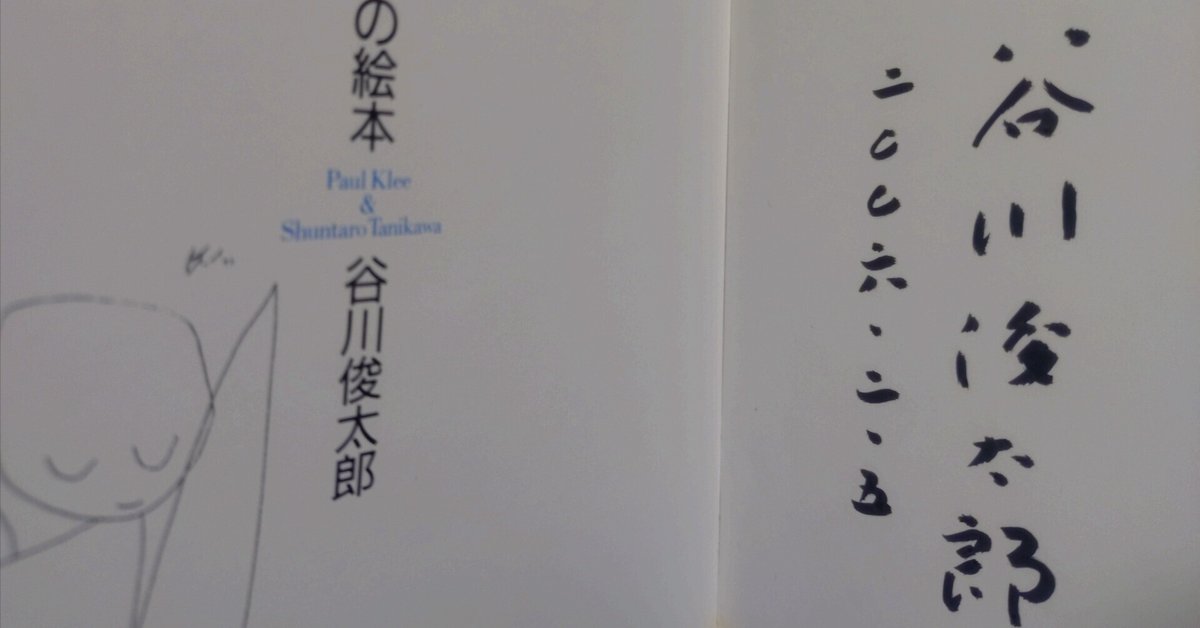 の絵本
Paul Klee
&
Shuntaro Tanikawa
谷川俊太郎
谷川俊太郎
二〇〇六・二・五